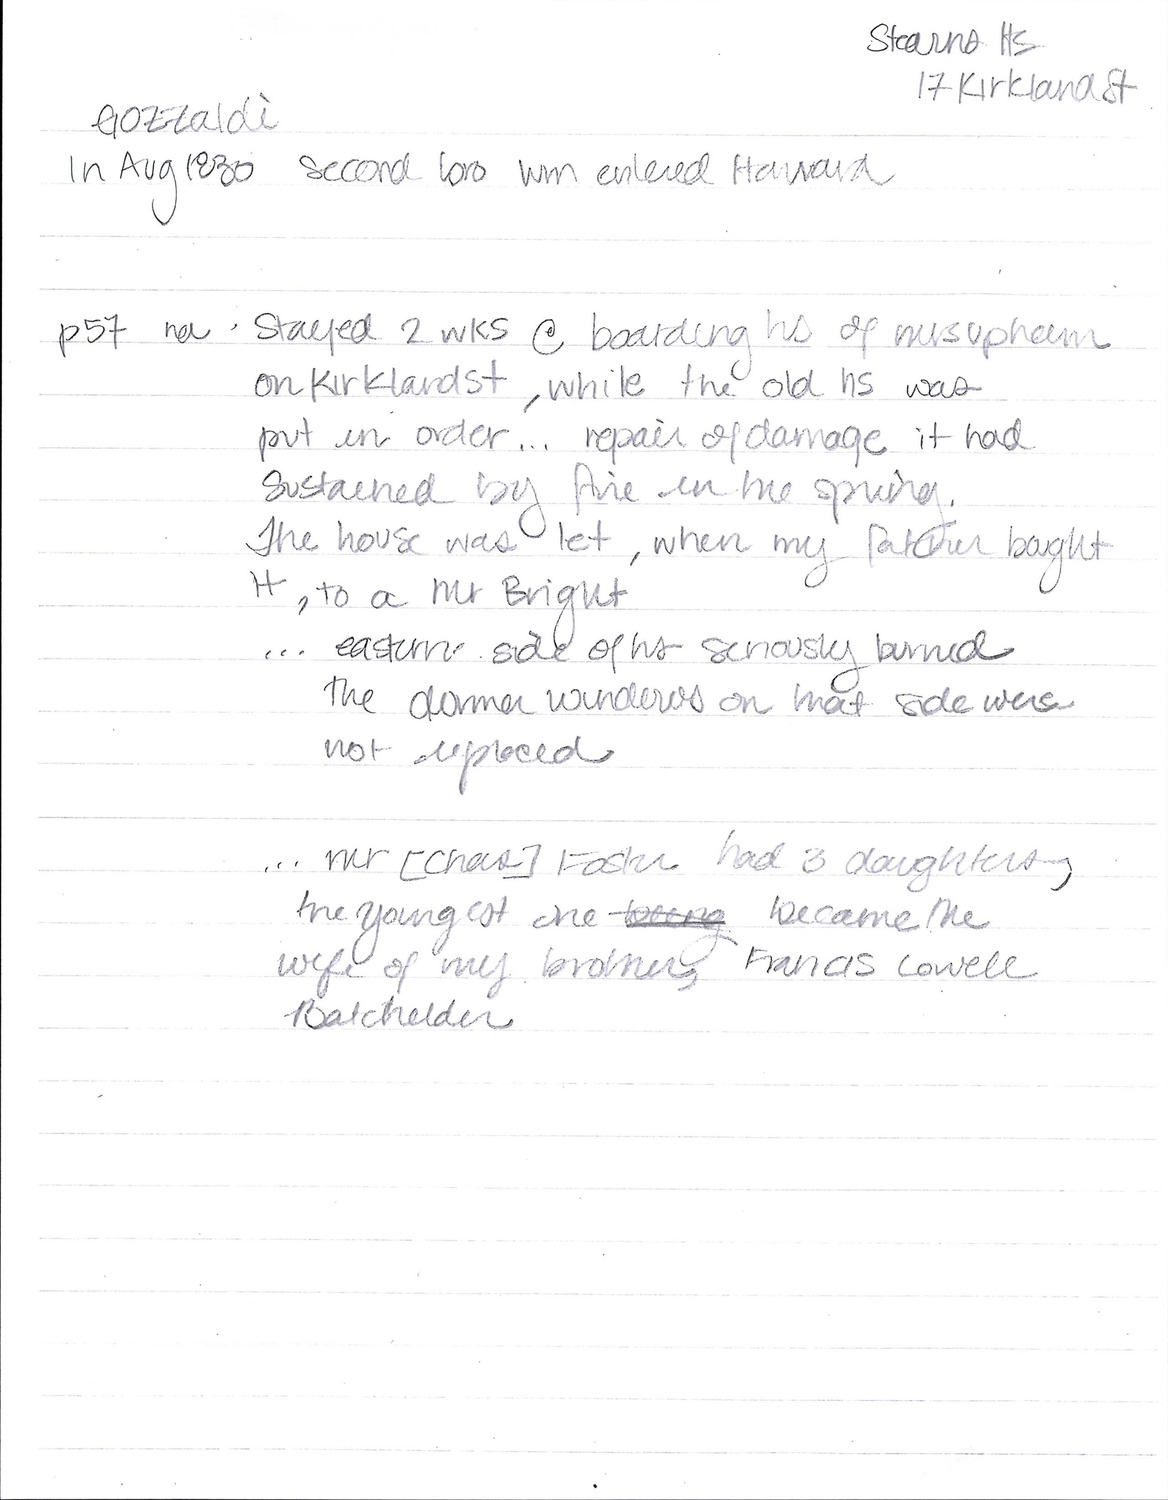 Stearns Hs
17 Kirkland St
Gozzaldi
In Aug 1830 second bro wm entered Harvard
p57 Stayed 2 wks @ boarding hs of mrs upham
on Kirkland st, while the old hs was
put in order... repair of damage it had
sustained by fire in the spring.
The house was let, when my father bought
it, to a Mr Bright
... eastern side of hs seriously burned
the dormer windows on that side were
not replaced
... Mr [Chas] Foster had 3 daughters,
the youngest one being became the
wife of my brother, Francis Lowell
Batchelder